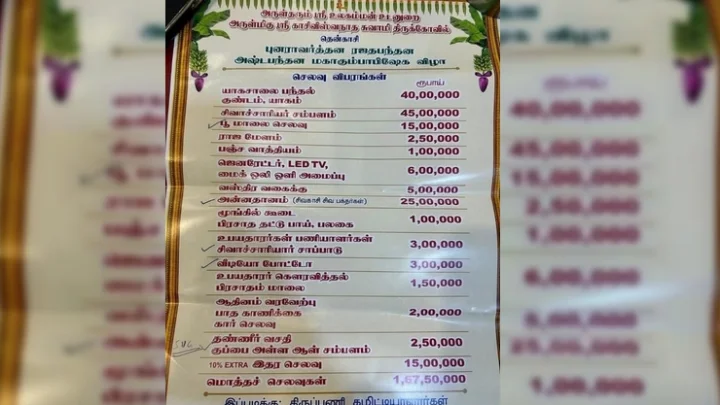 அருள்தரும் ஸ்ரீ உலகம்மன் உடனுறை
அருள்மிகு ஸ்ரீ காசிவிஸ்வநாத சுவாமி திருக்கோவில்
தென்காசி
புனராவர்த்தன ரஜதபந்தன
அஷ்டபந்தன மகாகும்பாபிஷேக விழா
செலவு விபரங்கள்
ரூபாய்
யாகசாலை பந்தல்
குண்டம், யாகம் 40,00,000
சிவாச்சாரியர் சம்பளம் 45,00,000
பூ மாலை செலவு 15,00,000
ராஜ மேளம் 2,50,000
பஞ்ச வாத்தியம் 1,00,000
ஜெனரேட்டர், LED TV,
மைக் ஒலி ஒளி அமைப்பு 6,00,000
வஸ்திர வகைக்கு 5,00,000
அன்னதானம் (சிவகாசி சிவ பக்தர்கள்) 25,00,000
மூங்கில் கூடை
பிரசாத தட்டு பாய், பலகை 1,00,000
உபயதாரர்கள் பணியாளர்கள்
சிவாச்சாரியார் சாப்பாடு 3,00,000
வீடியோ போட்டோ 3,00,000
உபயதாரர் கௌரவித்தல்
பிரசாதம் மாலை 1,50,000
ஆதினம் வரவேற்பு
பாத காணிக்கை
கார் செலவு 2,00,000
தண்ணீர் வசதி
குப்பை அள்ள ஆள் சம்பளம் 2,50,000
10% EXTRA இதர செலவு 15,00,000
மொத்தச் செலவுகள் 1,67,50,000
இப்படிக்கு: திருப்பணி கமிட்டியாளர்கள்